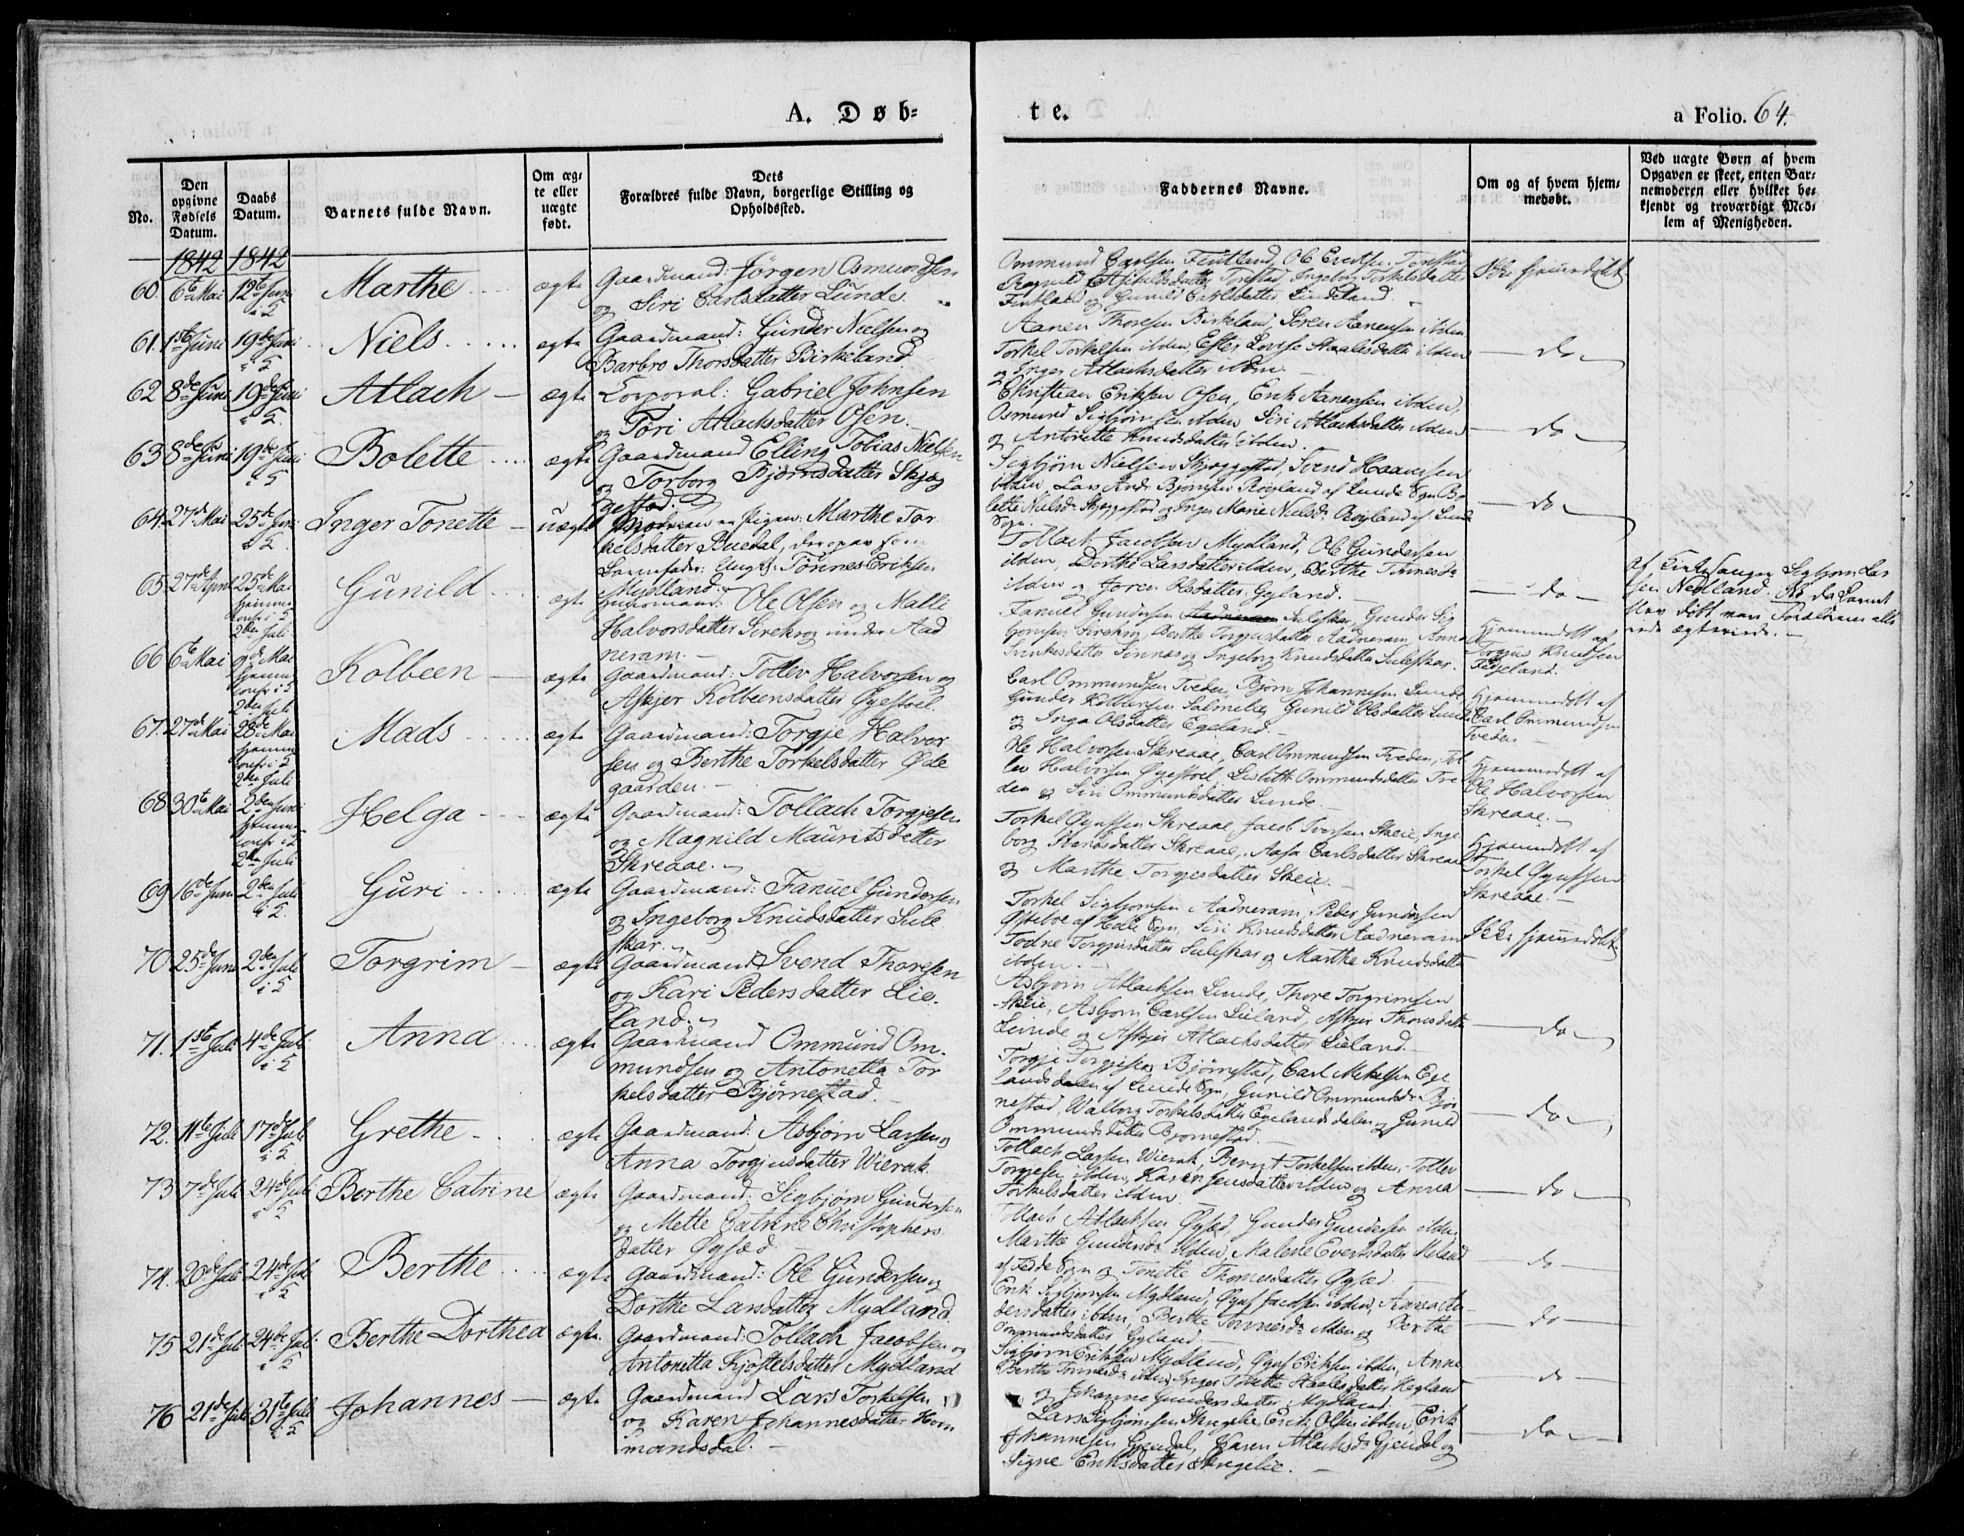 A. Døb-
te.
a Folio. 64.
No.
Den opgivne Fødsels Datum.
Daabs Datum.
Barnets fulde Navn.
Om ægte eller uægte født.
Dets Forældres fulde Navn, borgerlige Stilling og Opholdssted.
Faddernes Navne.
Om og af hvem hjemmedøbt.
Ved uægte Børn af hvem Opgaven er skeet, enten Barnemoderen eller hvilket bekjendt og troværdigt Medlem af Menigheden.
1842 1842
60 6te Mai 12te Juni Marthe ægte Gaardmand: Jörgen Osmundsen
og Siri Carlsdatter Lunde.
Ommund Carlsen Fintland, Ole Evertsen Torestad
Ragnild Torestad, Ingeborg Torkelsdatter
Fintland og Gunild Carlsdatter Lindeland.
Ikke hjemmedøbt
61. 1ste Juni 19de Juni Niels ægte Gaardmand: Gunder Nielsen og
Barbro Thorsdatter Birkeland
Aanen Thoresen Birkeland, Soren Aanensen ibden
Torkel Torkelsen ibden, Ester Lovise ibden
og Inger Atlachsdatter
do
62 8de Juni 19de Juni Atlach ægte Corporal: Gabriel Johnsen
og Töri Atlachsdatter Osen.
Christian Eriksen Osen, Erik Aanensen ibden,
Osmund Sigbjørnsen ibden Siri Atlachsdatter ibden
og Antonette Knudsdatter ibden.
do
63 8de Juni 19de Juni Bolette ægte Gaardmand Elling Tobias Nielsen
og Torborg Bjørnsdatter Skjeg
gestad.
Sigbjørn Nielsen Skjeggestad, Svend Haaversen
ibden Lars Bjørnsen Røyland af Lunde Sgn Bo
lette Nielsd. Skjeggestad og Inger Marie Nielsd. Røyland af Lunde
Sgn.
do
64. 27de Mai 25de Juni Inger Tonette uægte Moderen er Pigen: Marthe Tor
kelsdatter Buedal, der opgav som
Barnefader: Ungk: Tönnes Eriksen
Mydland.
Tollach Jacobsen Mydland, Ole Gundersen
ibden, Dorthe Larsdatter ibden, Berthe Tönnesd.
ibden og Olsdatter Gyland.
do
Af Kirkesanger Sigbjorn Lar
sen Nedland. da Barnet
blev døbt vare Forældrene alle
rede ægteviede.
65 27de April 25de Mai Gunild ægte Huusmand: Ole Olsen og Malli
Halvorsdatter Sirekrog under Aad
neram.
Fanuel Gundersen Suleskar, Gunder Sig
bjornsen Sirekrog Berthe Torgiusdatter Aadneram, Anna
Sinnes og Ingeborg Knudsdatter Suleskar.
Hjemmedøbt af
Torgius Knudsen
66 6te Mai Mai Kolbeen ægte Gaardmand: Tollev Halvorsen og
Askjer Kolbeensdatter Øyestøel
Carl Ommundsen Tveden, Bjørn Johannesen Lunde
Gunder Kolbensen Salmelie, Gunild Olsdatter Lunde
og Inga Olsdatter Egeland.
Hjemmedøbt af
Carl Ommundsen
Tveden
67. 27de Mai 28de Mai Mads ægte Gaardmand: Torgje Halvor
sen og Berthe Torkelsdatter Øde
gaarden.
Ole Halvorsen Skreaae, Carl Ommundsen Tveden, Tol
lev Halvorsen Øyestøel, Ommundsdatter Tve
den og Siri Ommundsdatter Lunde.
Hjemmedøbt af
Ole Halvorsen
Skreaae.
68 30te Mai 2den Juni Helga ægte Gaardmand: Tollach Torgjesen
og Magnild Mauritsdatter
Skreaae.
Torkel Øynfsen Skreaae, Jacob Ivorsen Skeie, Inge
borg Hansdatter Skreaae, Aasa Carlsdatter Skreaae
og Marthe Torgjesdatter Skeie.
Hjemmedøbt af
Torkel Øynfsen
Skreaae.
69 16de Juni 2den Juli Guri ægte Gaardmand: Fanuel Gundersen
og Ingeborg Knudsdatter Sule
skar.
Torkel Sigbjornsen Aadneram, Peder Gundersen
af Sgn, Siri Knudsdatter Aadneram
Todne Torgjusdatter Suleskar og Marthe Knudsdatter
ibden.
Ikke hjemmedøbt
70 25de Juni 2den Juli Torgrim ægte Gaardmand Svend Thoresen
og Kari Pedersdatter Lie-
land.
Asbjørn Atlachsen Lunde, Thore Torgrimsen
Skeie, Asbjorn Carlsen Lieland, Askjer Thoresdatter
Lunde og Askjer Atlachsdatter Lieland.
do
71. 1ste Juli 4de Juli Anna ægte Gaardmand Ommund Om-
mundsen og Antonetta Tor
kelsdatter Bjørnestad.
Torgje Torgjesen Bjørnestad, Carl Mikelsen Ege
landsdalen af Lunde Sgn, Gunild Ommundsd. Bjør
nestad, Walborg Torkelsdatter Egelandsdalen og Gunild
Ommundsdatter Bjornestad.
do
72. 11te Juli 17de Juli Grethe ægte Gaardmand: Asbjørn Larsen og
Anna Torgjusdatter Wierak
Tollach Larsen Wierak, Bernt Torkelsen ibden, Tollev
Torgjesen ibden, Karen Jensdatter ibden og Anna
Torkelsdatter ibden.
do
73 7de Juli 24de Juli Berthe Catrine ægte Gaardmand: Sigbjørn Gundersen
og Mette Catrine Christophers
datter Øysæd
Tollach Atlachsen Øysed, Gunder Gundersen ibden
Marthe Gundersd. ibden, Malene Evertsdatter Meland
af Fede Sgn og Tonette Thomesdatter Øysed.
do
74. 20de Juli 24de Juli Berthe ægte Gaardmand: Ole Gundersen og
Dorthe Larsdatter Mydland
Erik Sigbjørnsen Mydland, Øynf Jacobsen ibden, Anna
dersdatter ibden, Berthe Tönnesd. ibden og Berthe
Ommundsdatter Gyland.
do
75 21de Juli 24de Juli Berthe Dorthea ægte. Gaardmand: Tollach Jacobsen og
Antonetta Kjøstelsdatter Mydland
Sigbjørn Eriksen Mydland, Øynf Eriksen ibden, Anne
Berthe Tönnesd. ibden, Inger Tonette Haalesdatter Hegland
og Johanne Gundersdatter Mydland.
do
76 21de Juli 31te Juli Johannes ægte Gaardmand Lars Torkelsen
og Karen Johannesdatter Horn
mandsdal.
Lars Sigbjørnsen Skregelie, Erik Olsen ibden, Erik
Johannesen Gjendal, Karen Atlachsd. Gjendal og
Signe Eriksdatter Skregelie.
do